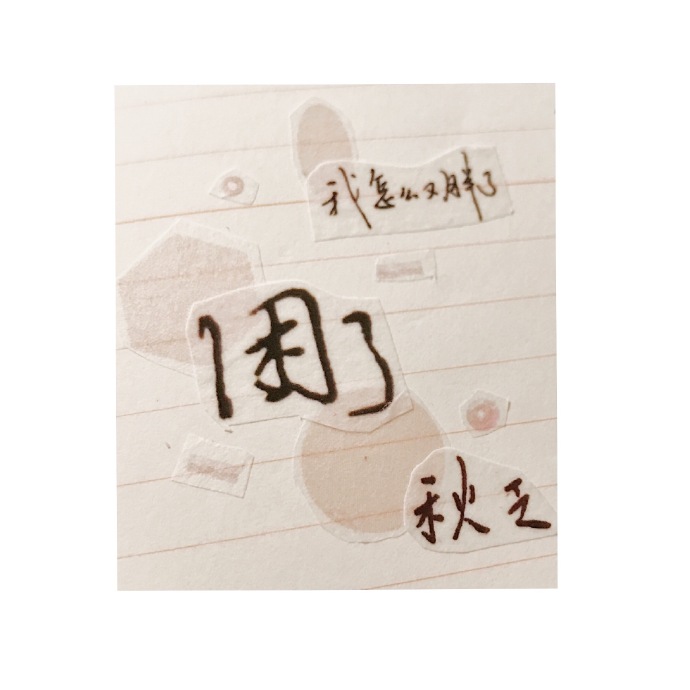 我怎么又胖了
困了
秋乏